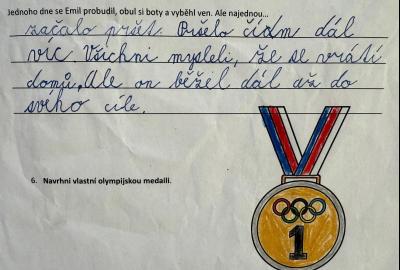 Jednoho dne se Emil probudil, obul si boty a vyběhl ven. Ale najednou...
začalo pršet. Pršelo čídm dál
víc. Všichni mysleli, že se vrátí
domů, Ale on běžel dál až do
svého cíle.
6. Navrhni vlastní olympijskou medaili.
1